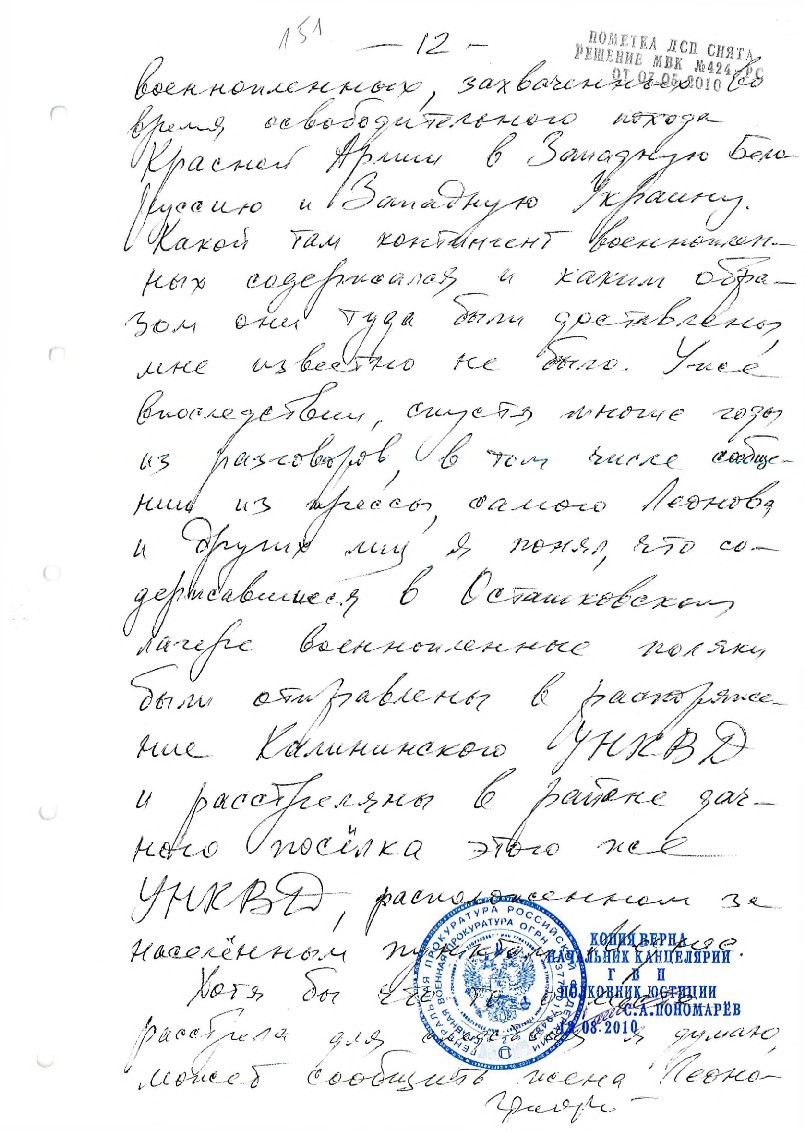 151
— 12 —
ПОМЕТКА ДСП СНЯТА
РЕШЕНИЕ МВК №424-РС
ОТ 07.05.2010
военнопленных, захваченных во
время освободительного похода
Красной Армии в Западную Бело-
руссию и Западную Украину.
Какой там контингент военноплен-
ных содержался и каким обра-
зом они туда были доставлены,
мне известно не было. Уже
впоследствии, спустя многие годы
из разговоров, в том числе сообще-
ний из прессы, самого Леонова
и других лиц я понял, что со-
державшиеся в Осташковском
лагере военнопленные поляки
были отправлены в распоряже-
ние Калининского УНКВД
и расстреляны в районе дач-
ного посёлка этого же
УНКВД, расположенном за
населённым пунктом
Хотя бы что то о
расстрела для я думаю,
может сообщить жена Леоно-
КОПИЯ ВЕРНА
НАЧАЛЬНИК КАНЦЕЛЯРИИ
Г В П
ПОЛКОВНИК ЮСТИЦИИ
С.А.ПОНОМАРЁВ
08.2010
ГЕНЕРАЛЬНАЯ ПРОКУРАТУРА РОССИЙСКОЙ ФЕДЕРАЦИИ
ГЛАВНАЯ ВОЕННАЯ ПРОКУРАТУРА ОГРН